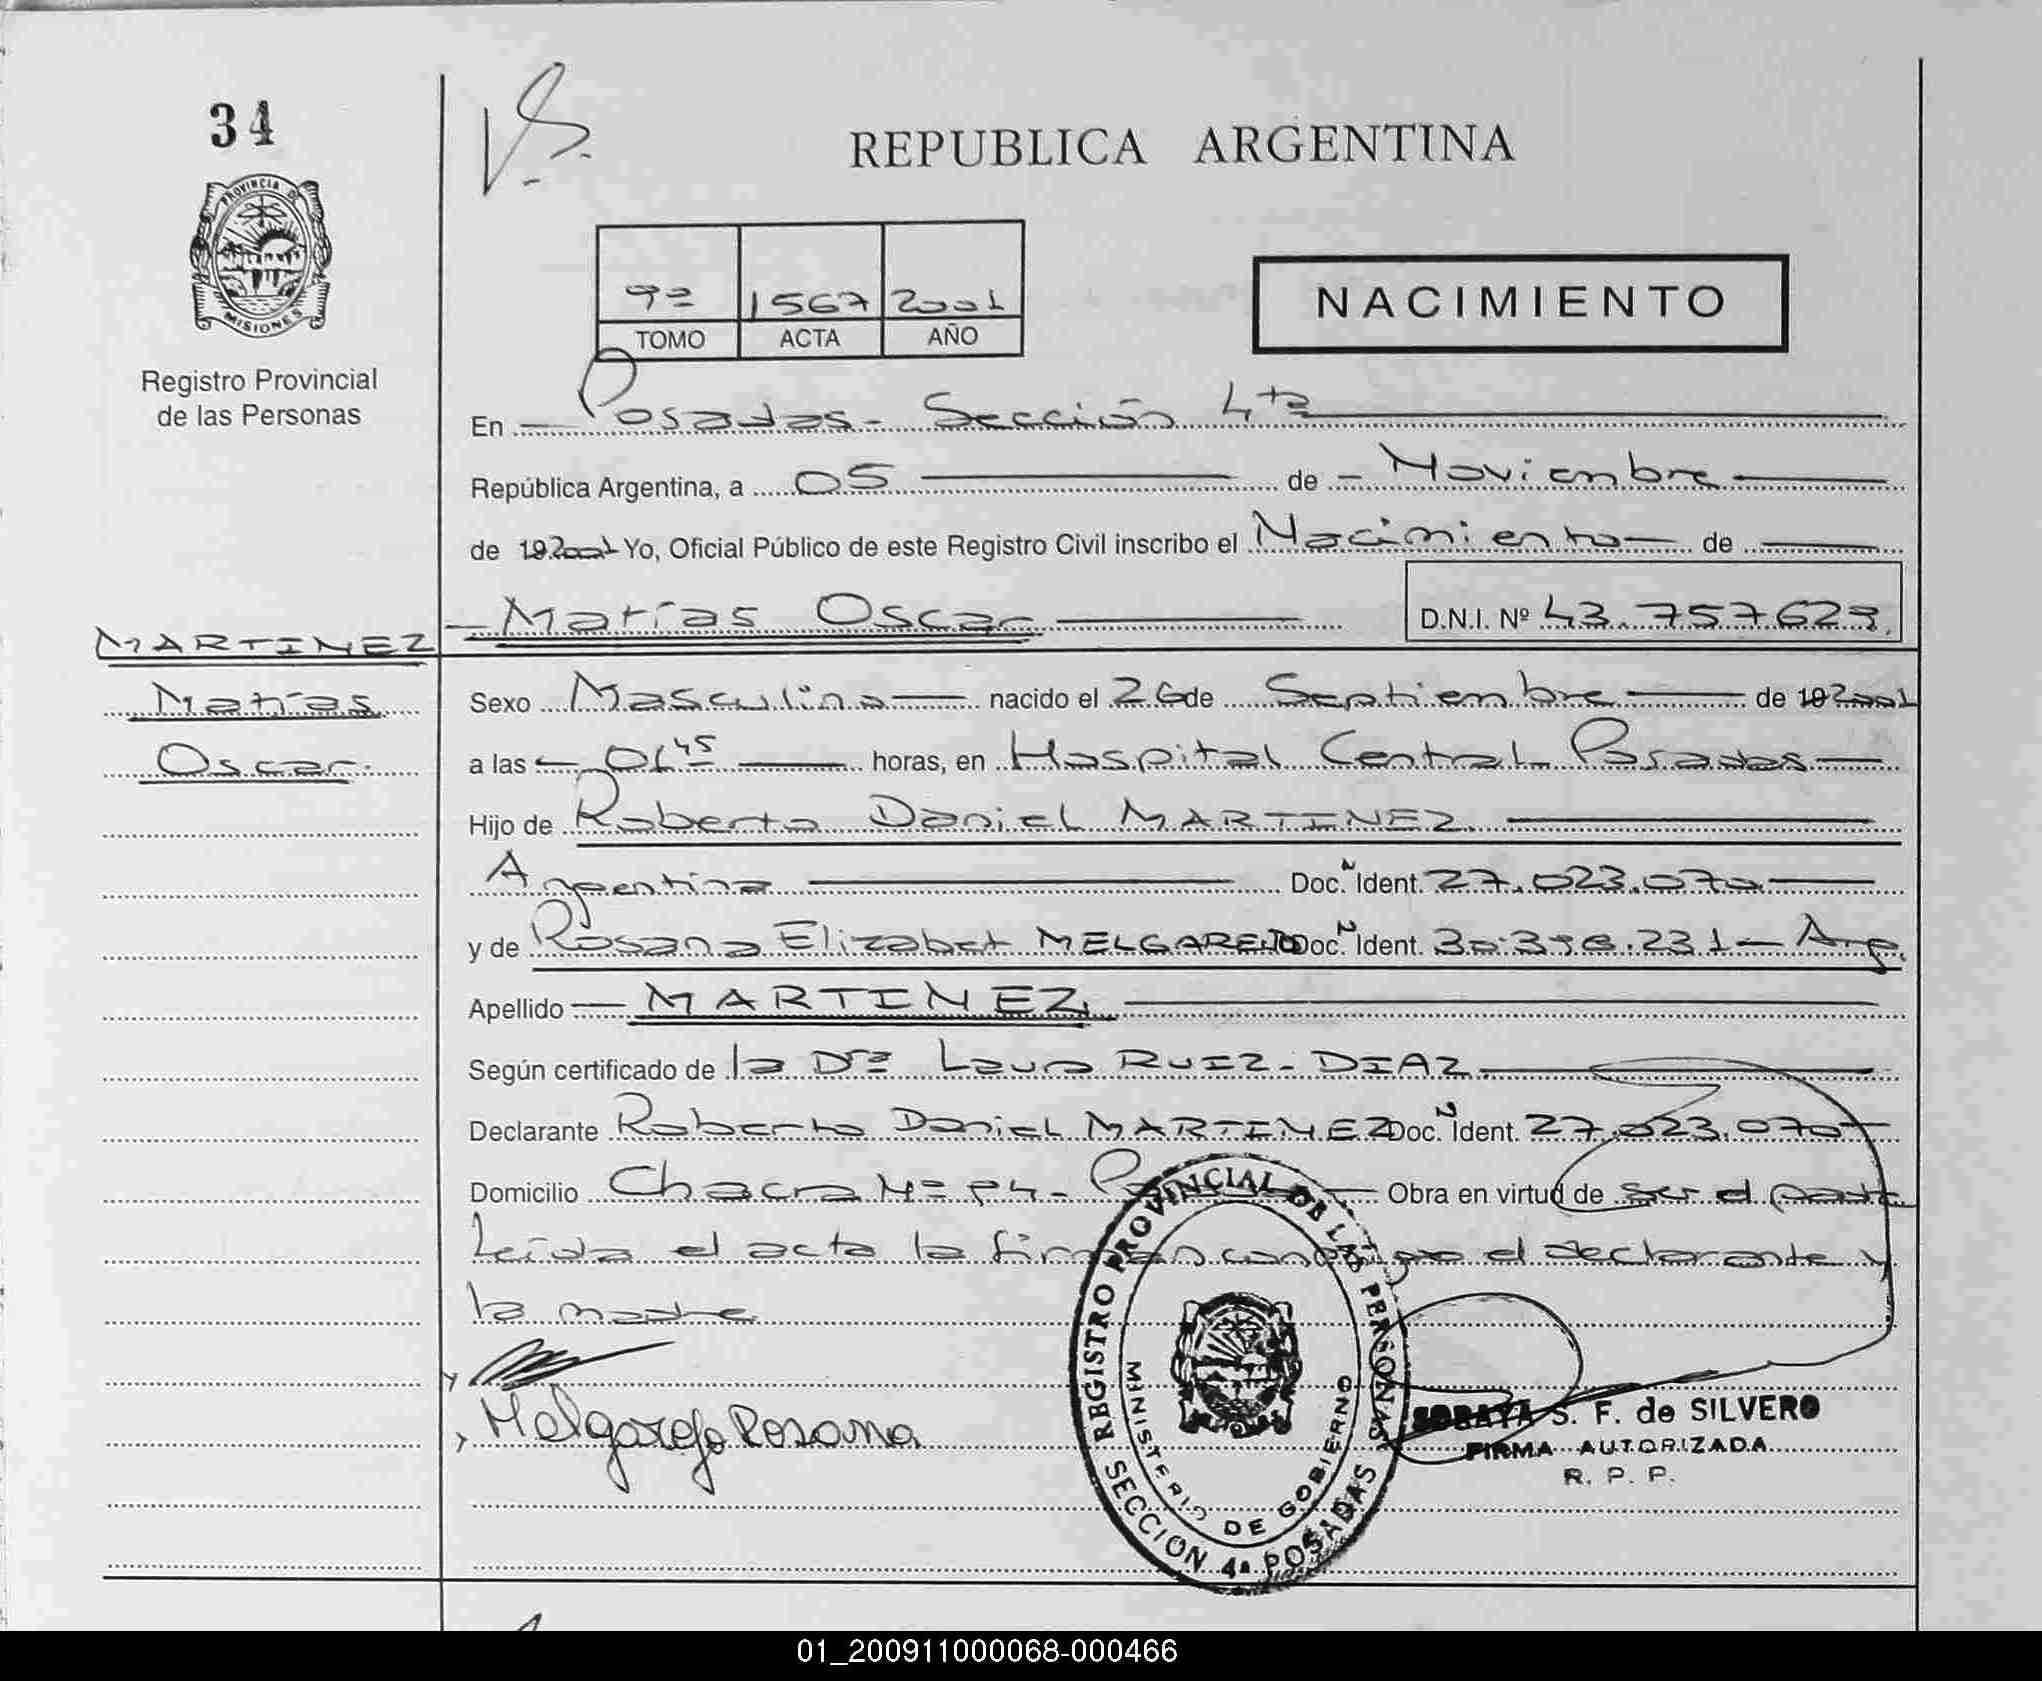 34
PROVINCIA DE
MISIONES
Registro Provincial
de las Personas
REPUBLICA ARGENTINA
1567 2001
TOMO ACTA AÑO
NACIMIENTO
En Posadas - Sección 4ta
República Argentina, a 05 de Noviembre
de 19 2001 Yo, Oficial Público de este Registro Civil inscribo el Nacimiento de
Matías Oscar D.N.I. Nº 43.757629
MARTINEZ
Matías
Oscar
Sexo Masculino nacido el 26 de Septiembre de 19 2001
a las horas, en Hospital Central Posadas
Hijo de Roberto Daniel MARTINEZ
Argentina Doc. Ident. 27.023.070
y de Rosana Elizabet MELGAREJO Doc. Ident. Arg.
Apellido MARTINEZ
Según certificado de la Dra Laura RUIZ-DIAZ
Declarante Roberto Daniel MARTINEZ Doc. Ident. 27.023.070
Domicilio Chacra Nº Obra en virtud de ser el padre
Leída el acta la firman conmigo el declarante y
la madre
Melgarejo Rosana
REGISTRO PROVINCIAL DE LAS PERSONAS
MINISTERIO DE GOBIERNO
SECCION 4ª POSADAS
SORAYA S. F. de SILVERO
FIRMA AUTORIZADA
R. P. P.
01_200911000068-000466